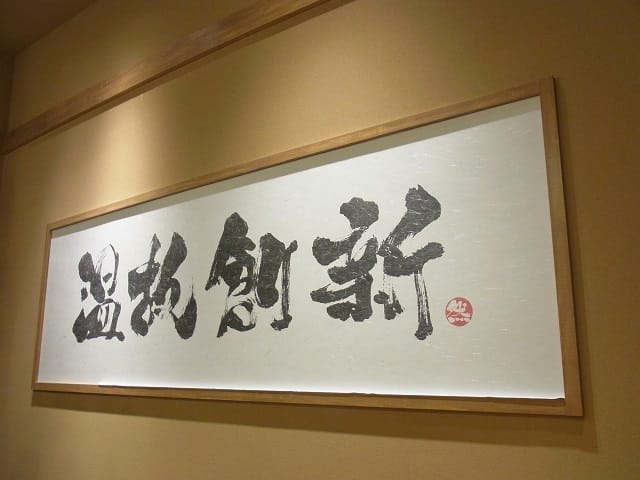 温故創新